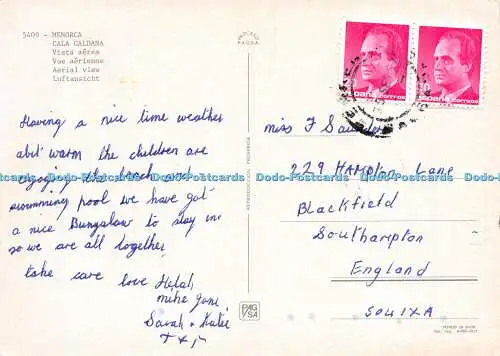 5400 - MENORCA
CALA GALDANA
Vista aérea
Vue aérienne
Aerial view
Luftansicht
Having a nice time weather
abit warm the children are
enjoying the beach and
swimming pool we have got
a nice Bungalow to stay in
so we are all together
take care love
mike Jane
Sarah + Katie
España CORREOS
España CORREOS
Miss J Saunders
229 HAMPTON Lane
Blackfield
Southampton
England
SO4 1XA
Dodo-Postcards Dodo-Postcards Dodo-Postcards Dodo-Postcards
PAG/SA